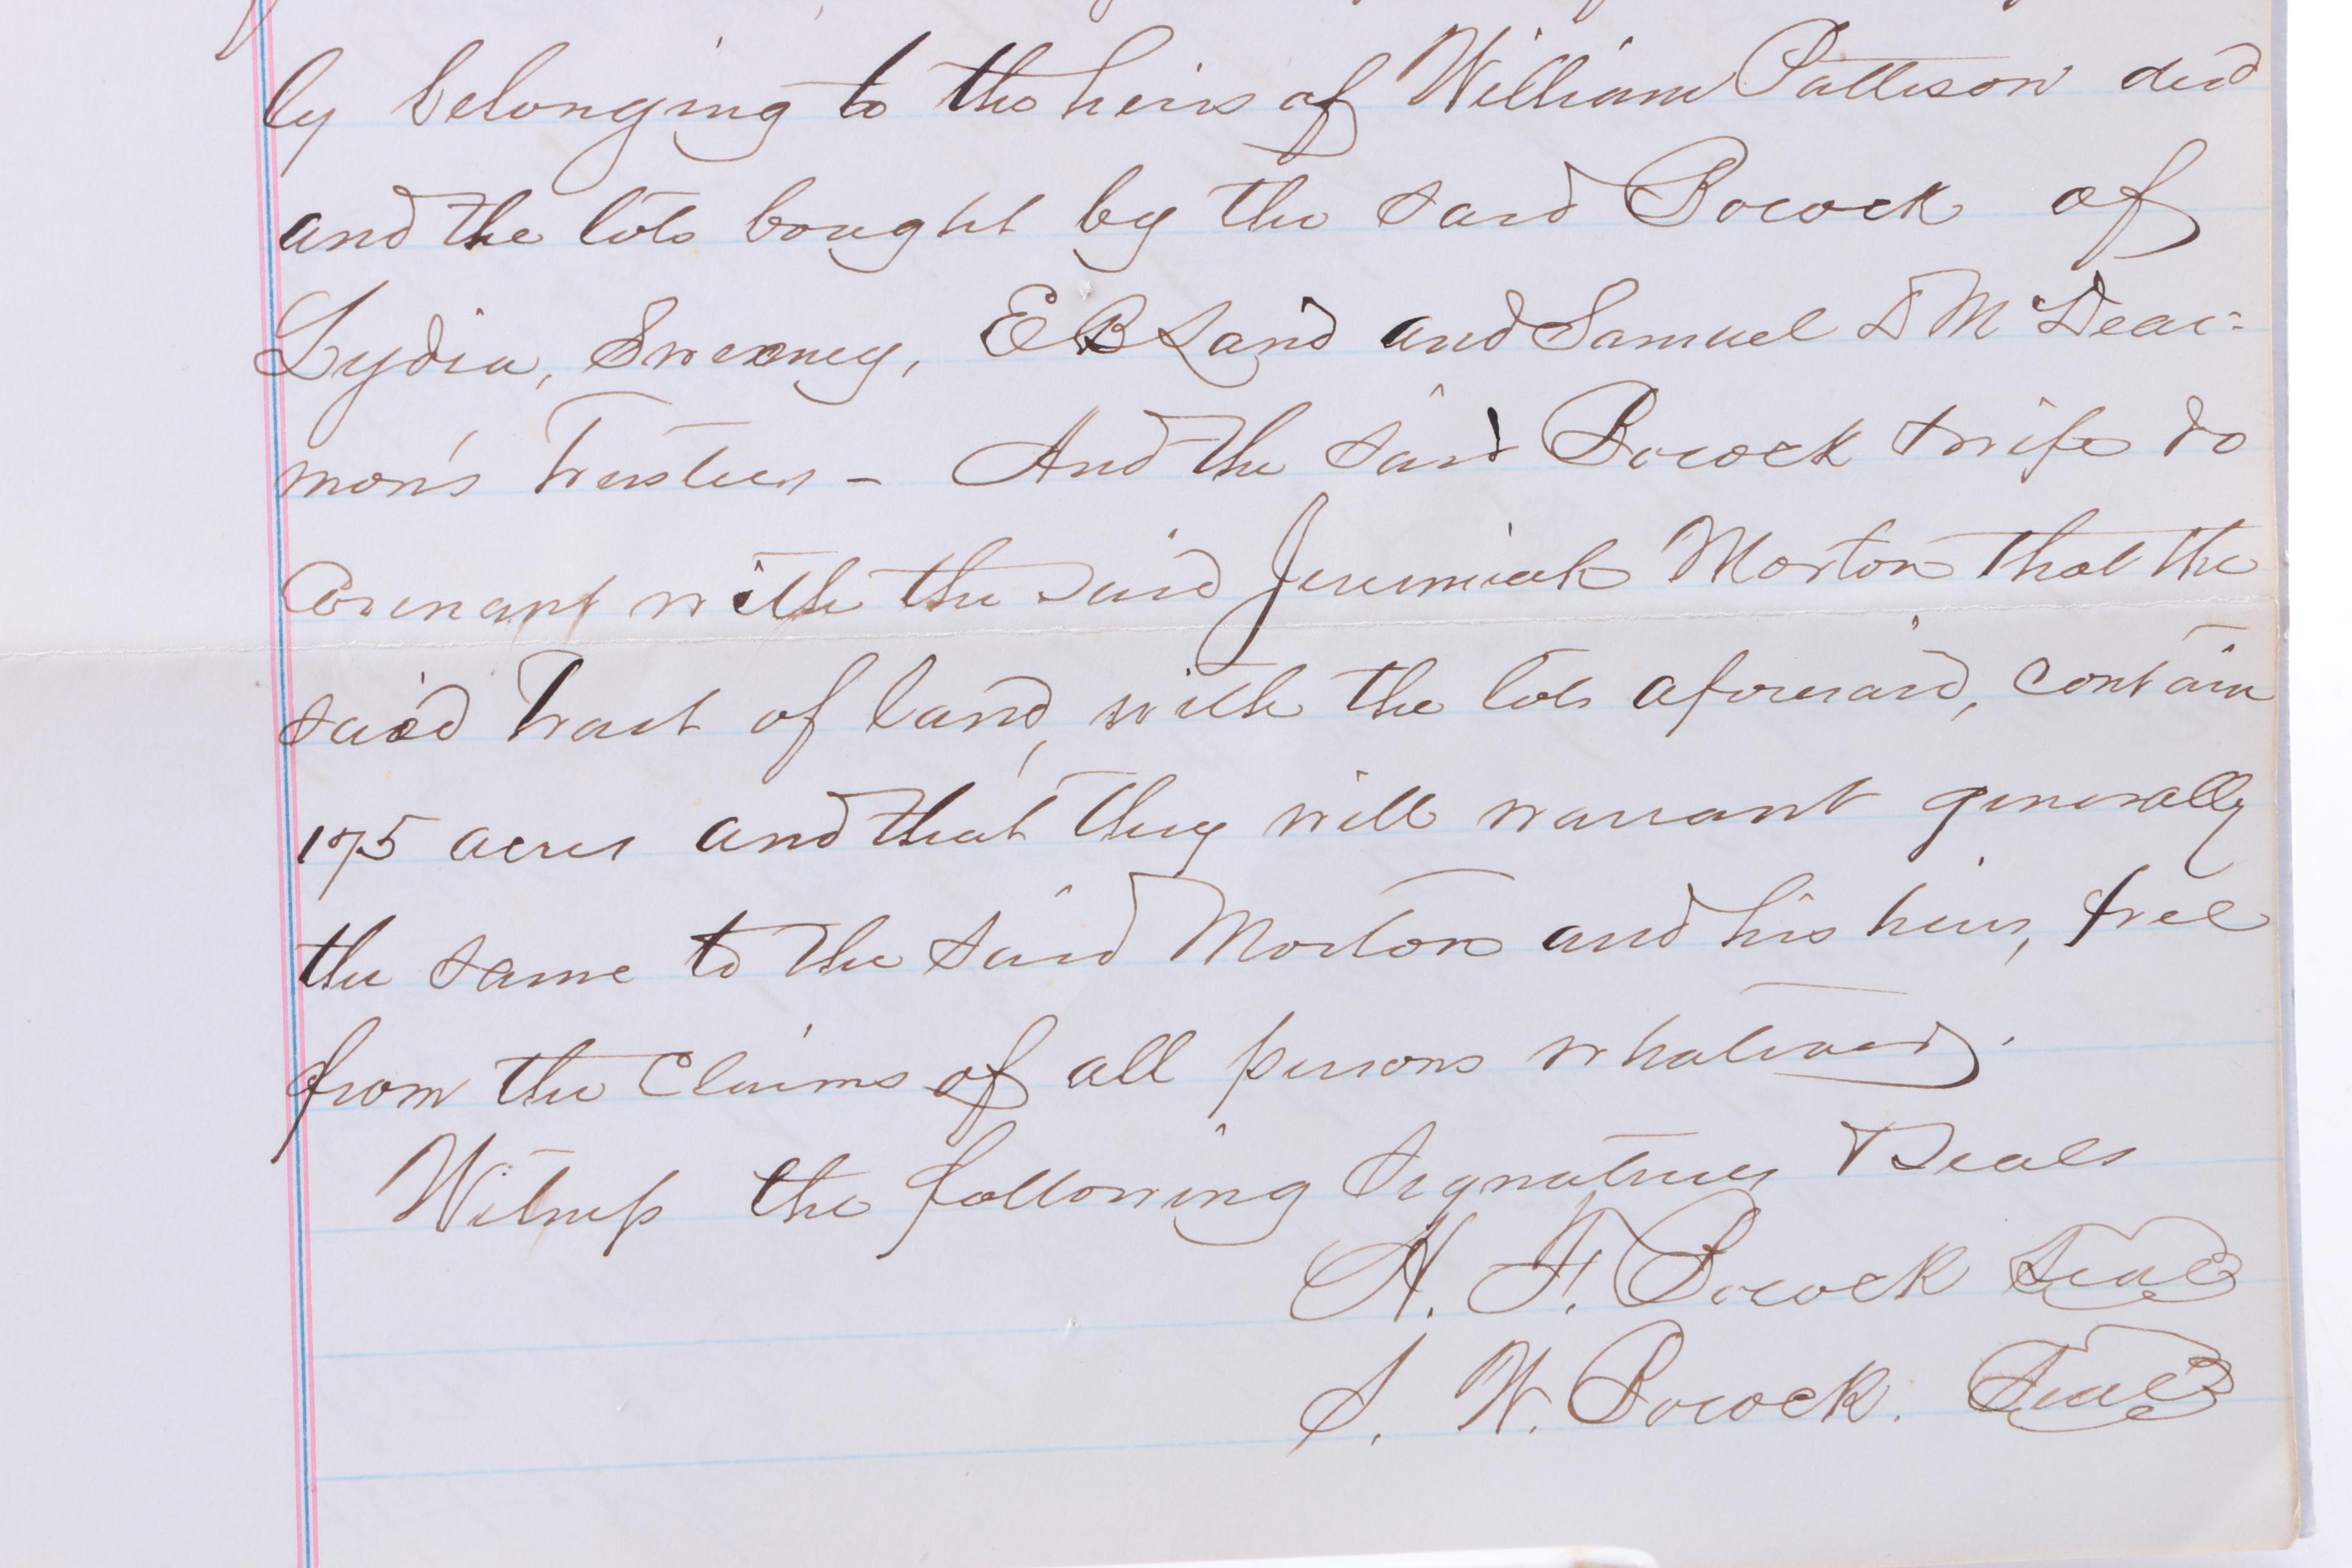 ly belonging to the heirs of William Pattison decd
and the lots bought by the said Bocock of
Lydia, Sweeney, E B Land and Samuel D McDear-
mon's Trustees - And the said Bocock & wife do
Covenant with the said Jeremiah Morton that the
said Tract of land, with the lots aforesaid, contain
175 acres and that they will warrant generally
the same to the said Morton and his heirs, free
from the Claims of all persons whatever.
Witness the following signatures & Seals
H. F. Bocock Seal
S. W. Bocock. Seal